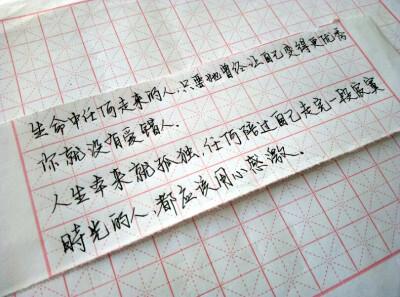 生命中任何走来的人,只要他曾经让自己变得更优秀
你就没有爱错人.
人生幸来就孤独,任何陪过自己走完一段寂寞
時光的人,都应该用心感激。